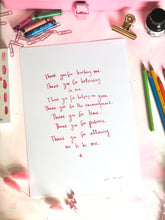 Thank you for teaching me.
Thank you for believing
in me.
Thank you for helping me grow.
Thank you for the encouragement.
Thank you for time.
Thank you for patience.
Thank you for allowing
me to be me.